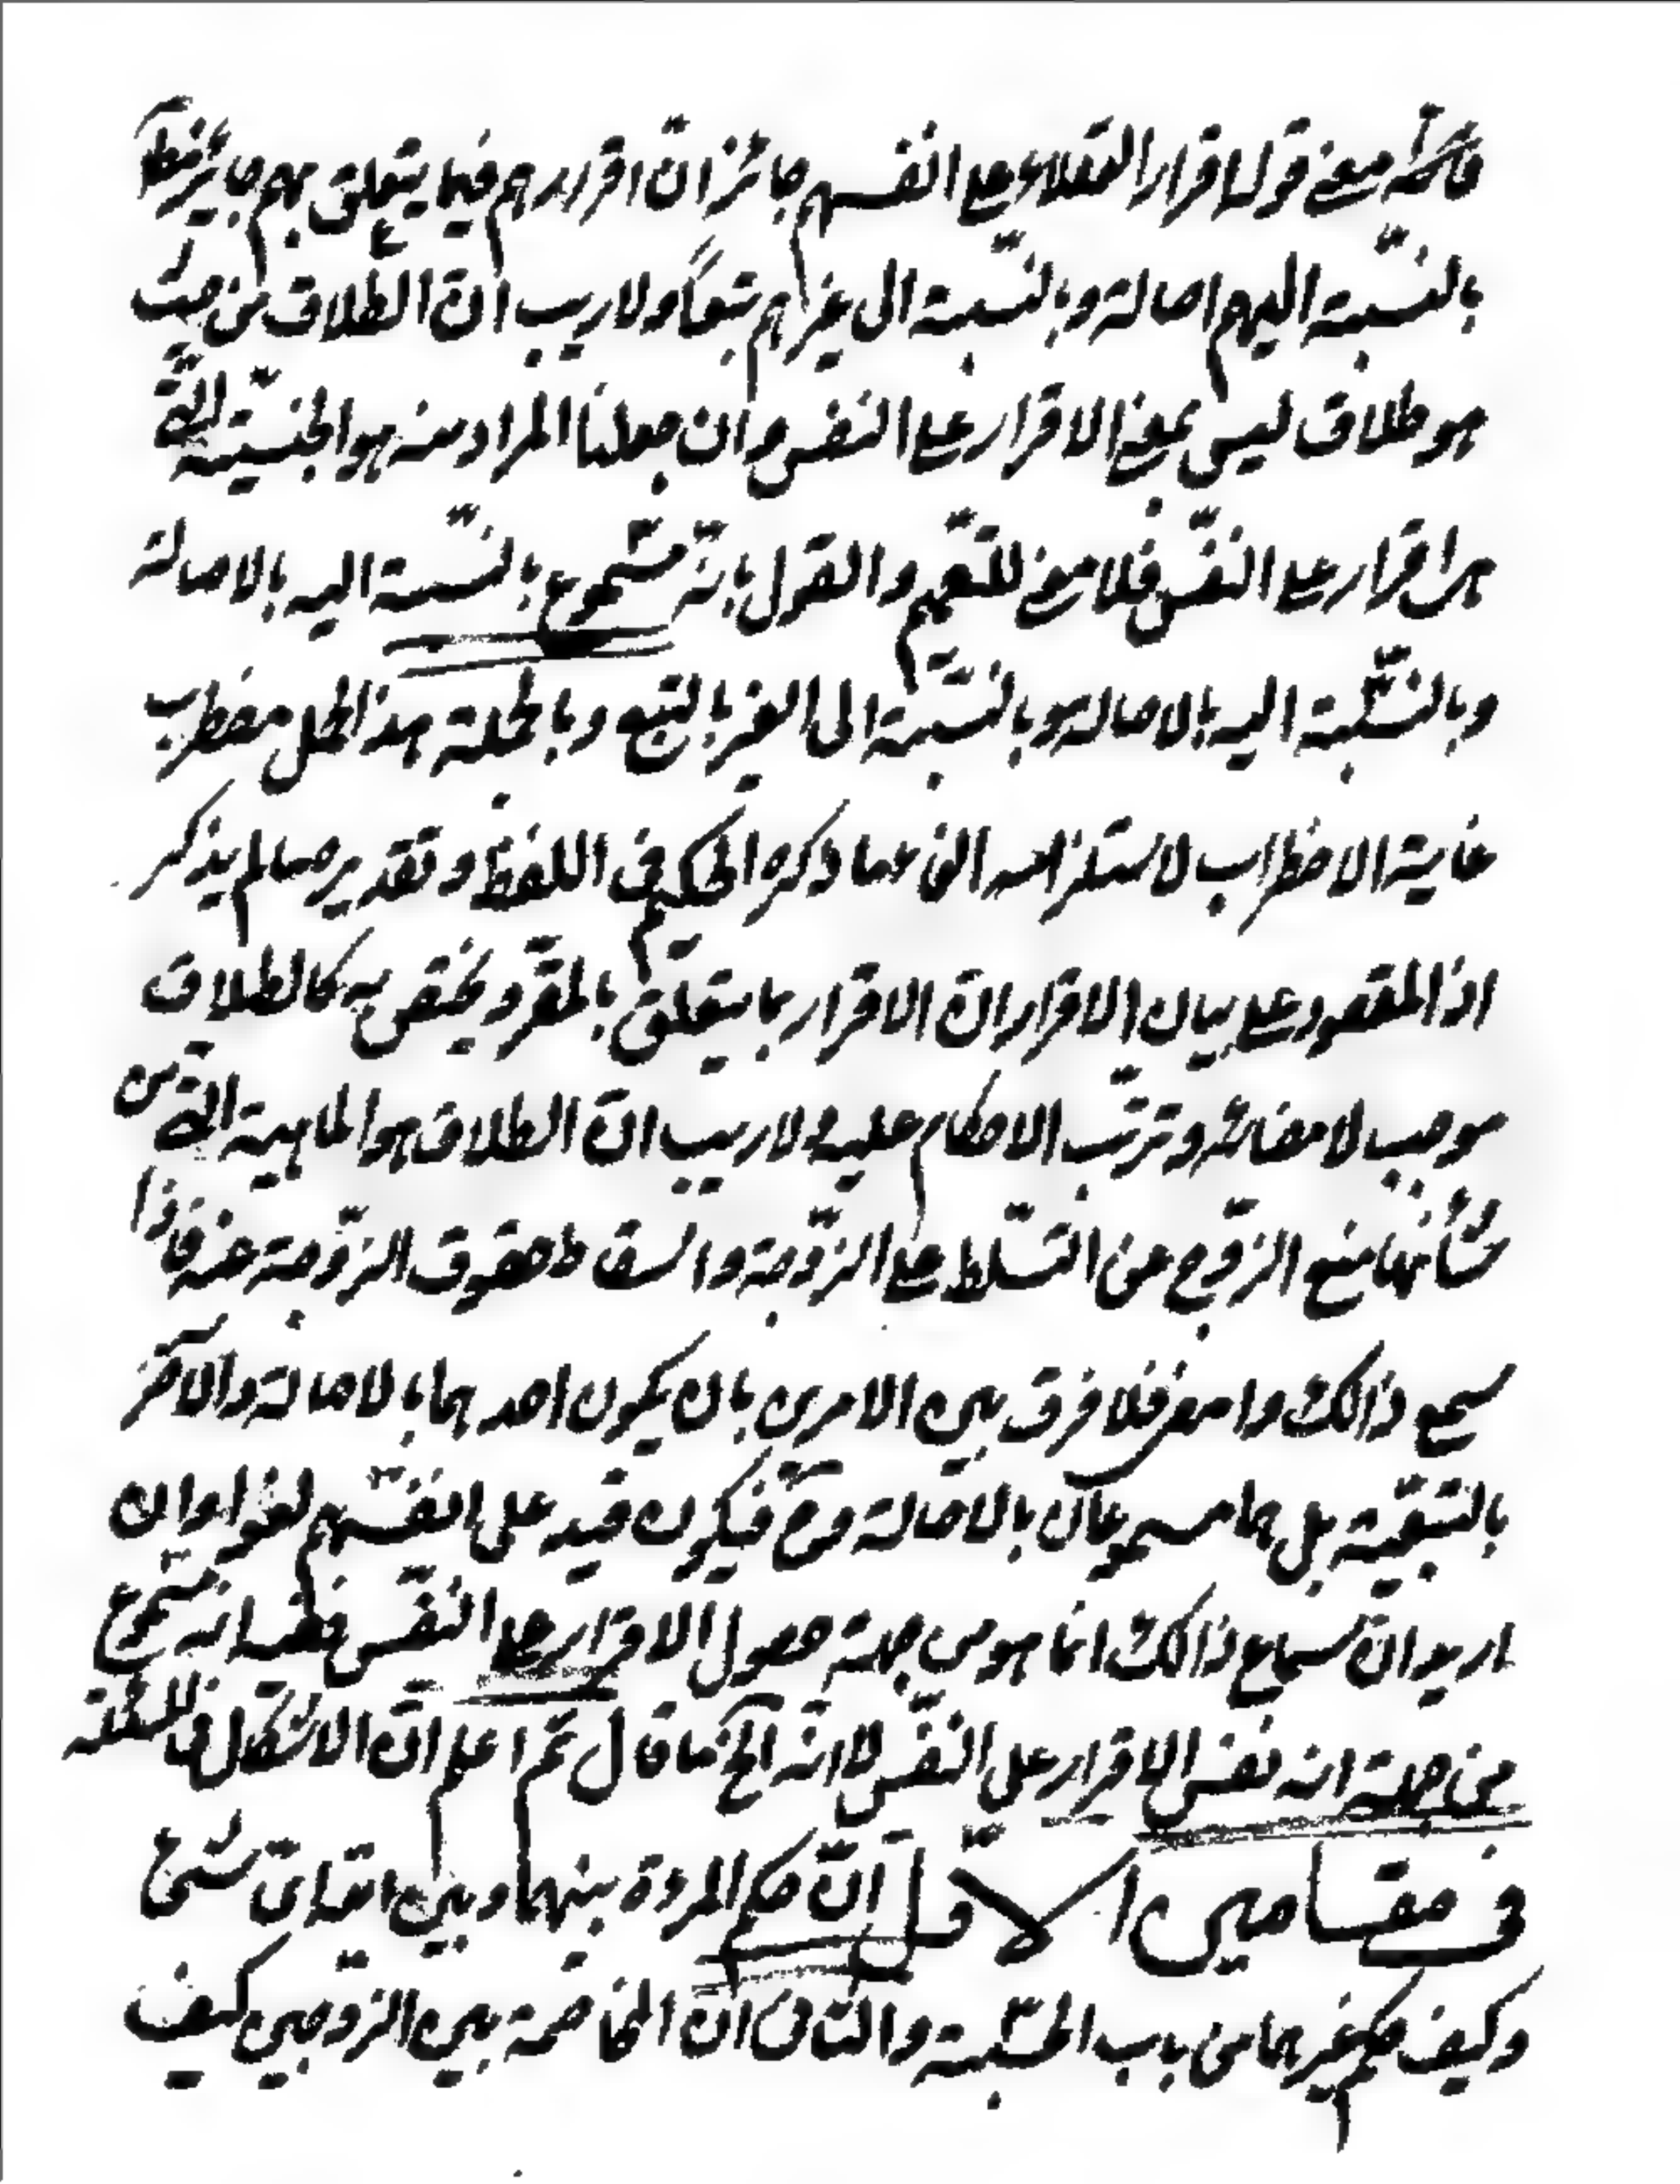 معنى قوله اقرار العقلاء على انفسهم جائز انّ اقرارهم فيما يتعلق بهم جايز
بالنسّبة اليهم اصالة وبالنسّبة الى غيرهم تبعاً ولا ريب انّ الطلاق من حيث
هو طلاق ليس بمعنى الاقرار على النفس وان جعلنا المراد منه هو الجنسيّة الّتي
اقرار على النفّس فلا معنى للتعّميم والقول بانّه مسّموع بالنسّبة اليه بالاصالة
وبالنسّبة اليه بالاصالة وبالنسّبة الى الغير بالتبع وبالجملة هذا المحل مضطرب
غاية الاضطراب لاستلزامه الغاء ما ذكره الحكيم في اللفظ وتقدير ما لم يذكر
اذ المقصود على بيان الاقرار انّ الاقرار بما يتعلّق بالمقرّ ويختص به كالطلاق
موجب لامضائه وترتّب الاحكام عليه ولا ريب انّ الطلاق هو الماهية التي من
شأنها منع الزوّج عن التسّلط على الزوّجة واسقاط حقوق الزوّجة عنه فاذا
سمع ذالك وامضى فلا فرق بين الامرين بان يكون احدهما بالاصالة والآخر
بالتبعيّة بل هما مسموعان بالاصالة وحّ فيكون قيد على انفسّهم لغوا وان
اريد انّ سماع ذالك انما هو من جهة حصول الاقرار على النفّس ففيه انه مسّموع
من جهة انه نفس الاقرار على النفّس لا انّه الخ ما قال ثم اعلم انّ الاشكال في المسئلة
في مقامين الاوّل انّ حكم المرءة بينها وبين الله تعالى شئ
وكيف حكم غيرها من باب الحسّبة والثّاني انّ المخاصمة بين الزوجين كيف